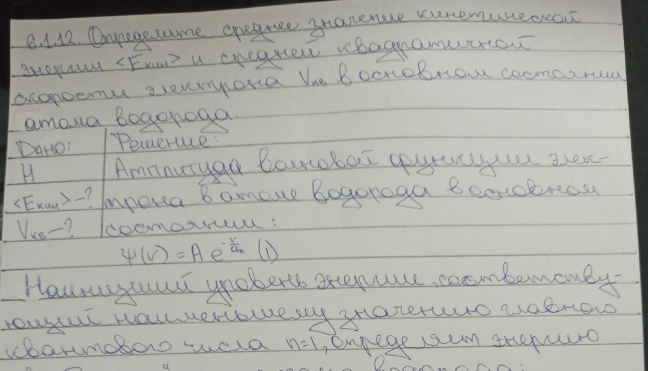 6.1.12. Определите среднее значение кинетической
энергии <Eкин> и средней квадратичной
скорости электрона Vкв в основном состоянии
атома водорода.
Дано: Решение:
H Амплитуда волновой функции элек-
<Eкин>-? трона в атоме водорода в основном
Vкв-? состоянии:
Ψ(r) = A e^{-r/a₀} (1)
Наинизший уровень энергии, соответству-
ющий наименьшему значению главного
квантового числа n=1, определяет энергию
атома водорода: